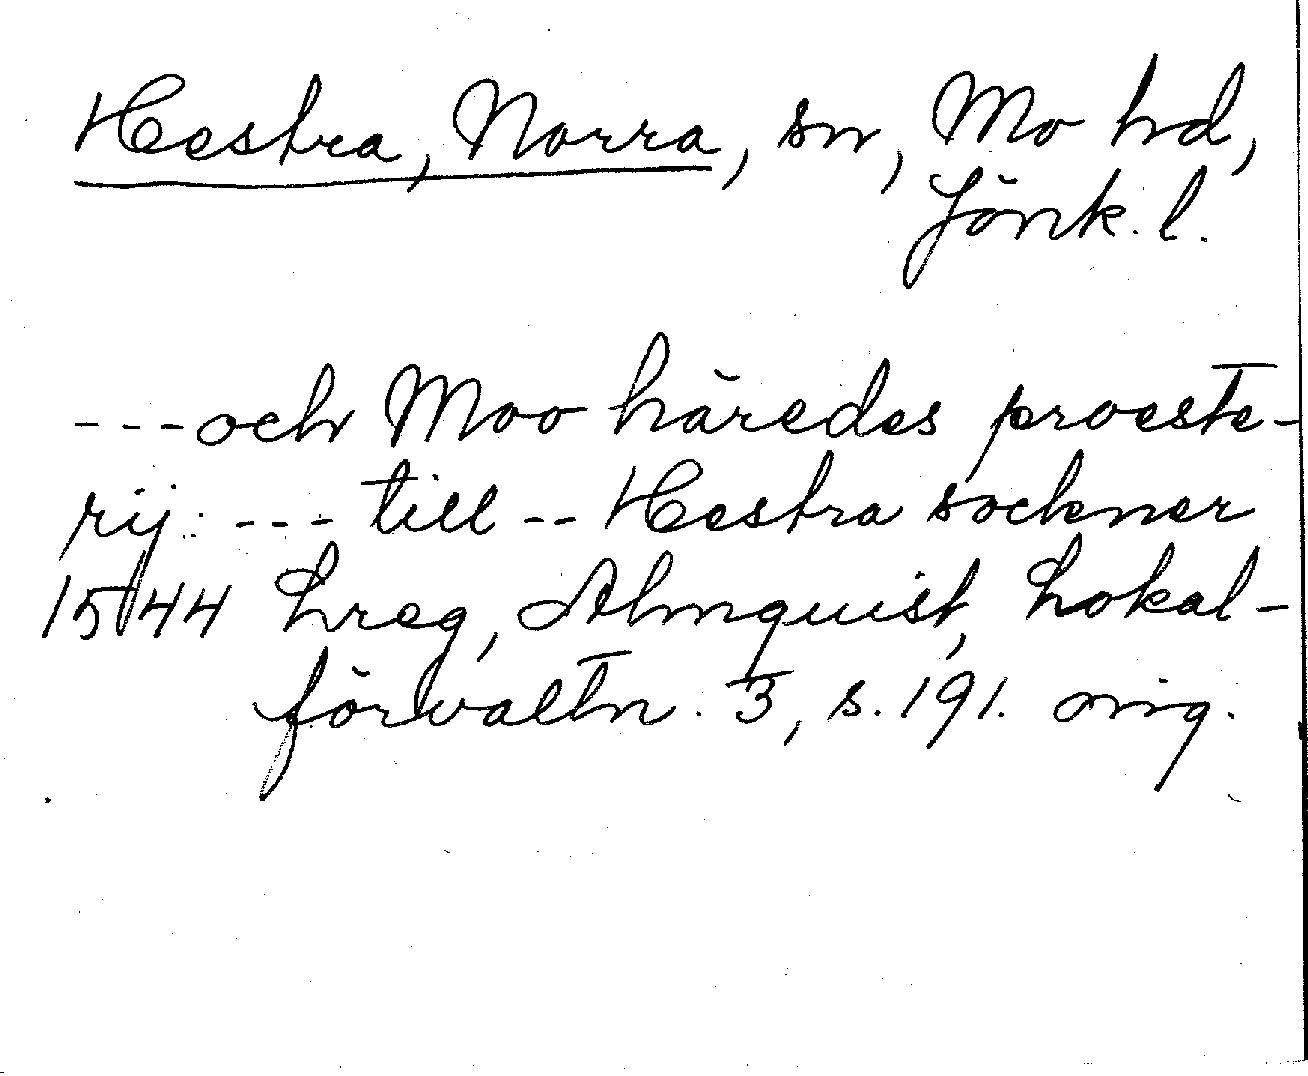 Hestra, Norra, sn, Mo hd,
Jönk. l.
---och Moo häredes proeste-
rij: --- till -- Hestra sockner
1544 Lreg, Almquist, Lokal-
förvaltn. 3, s. 191. orig.